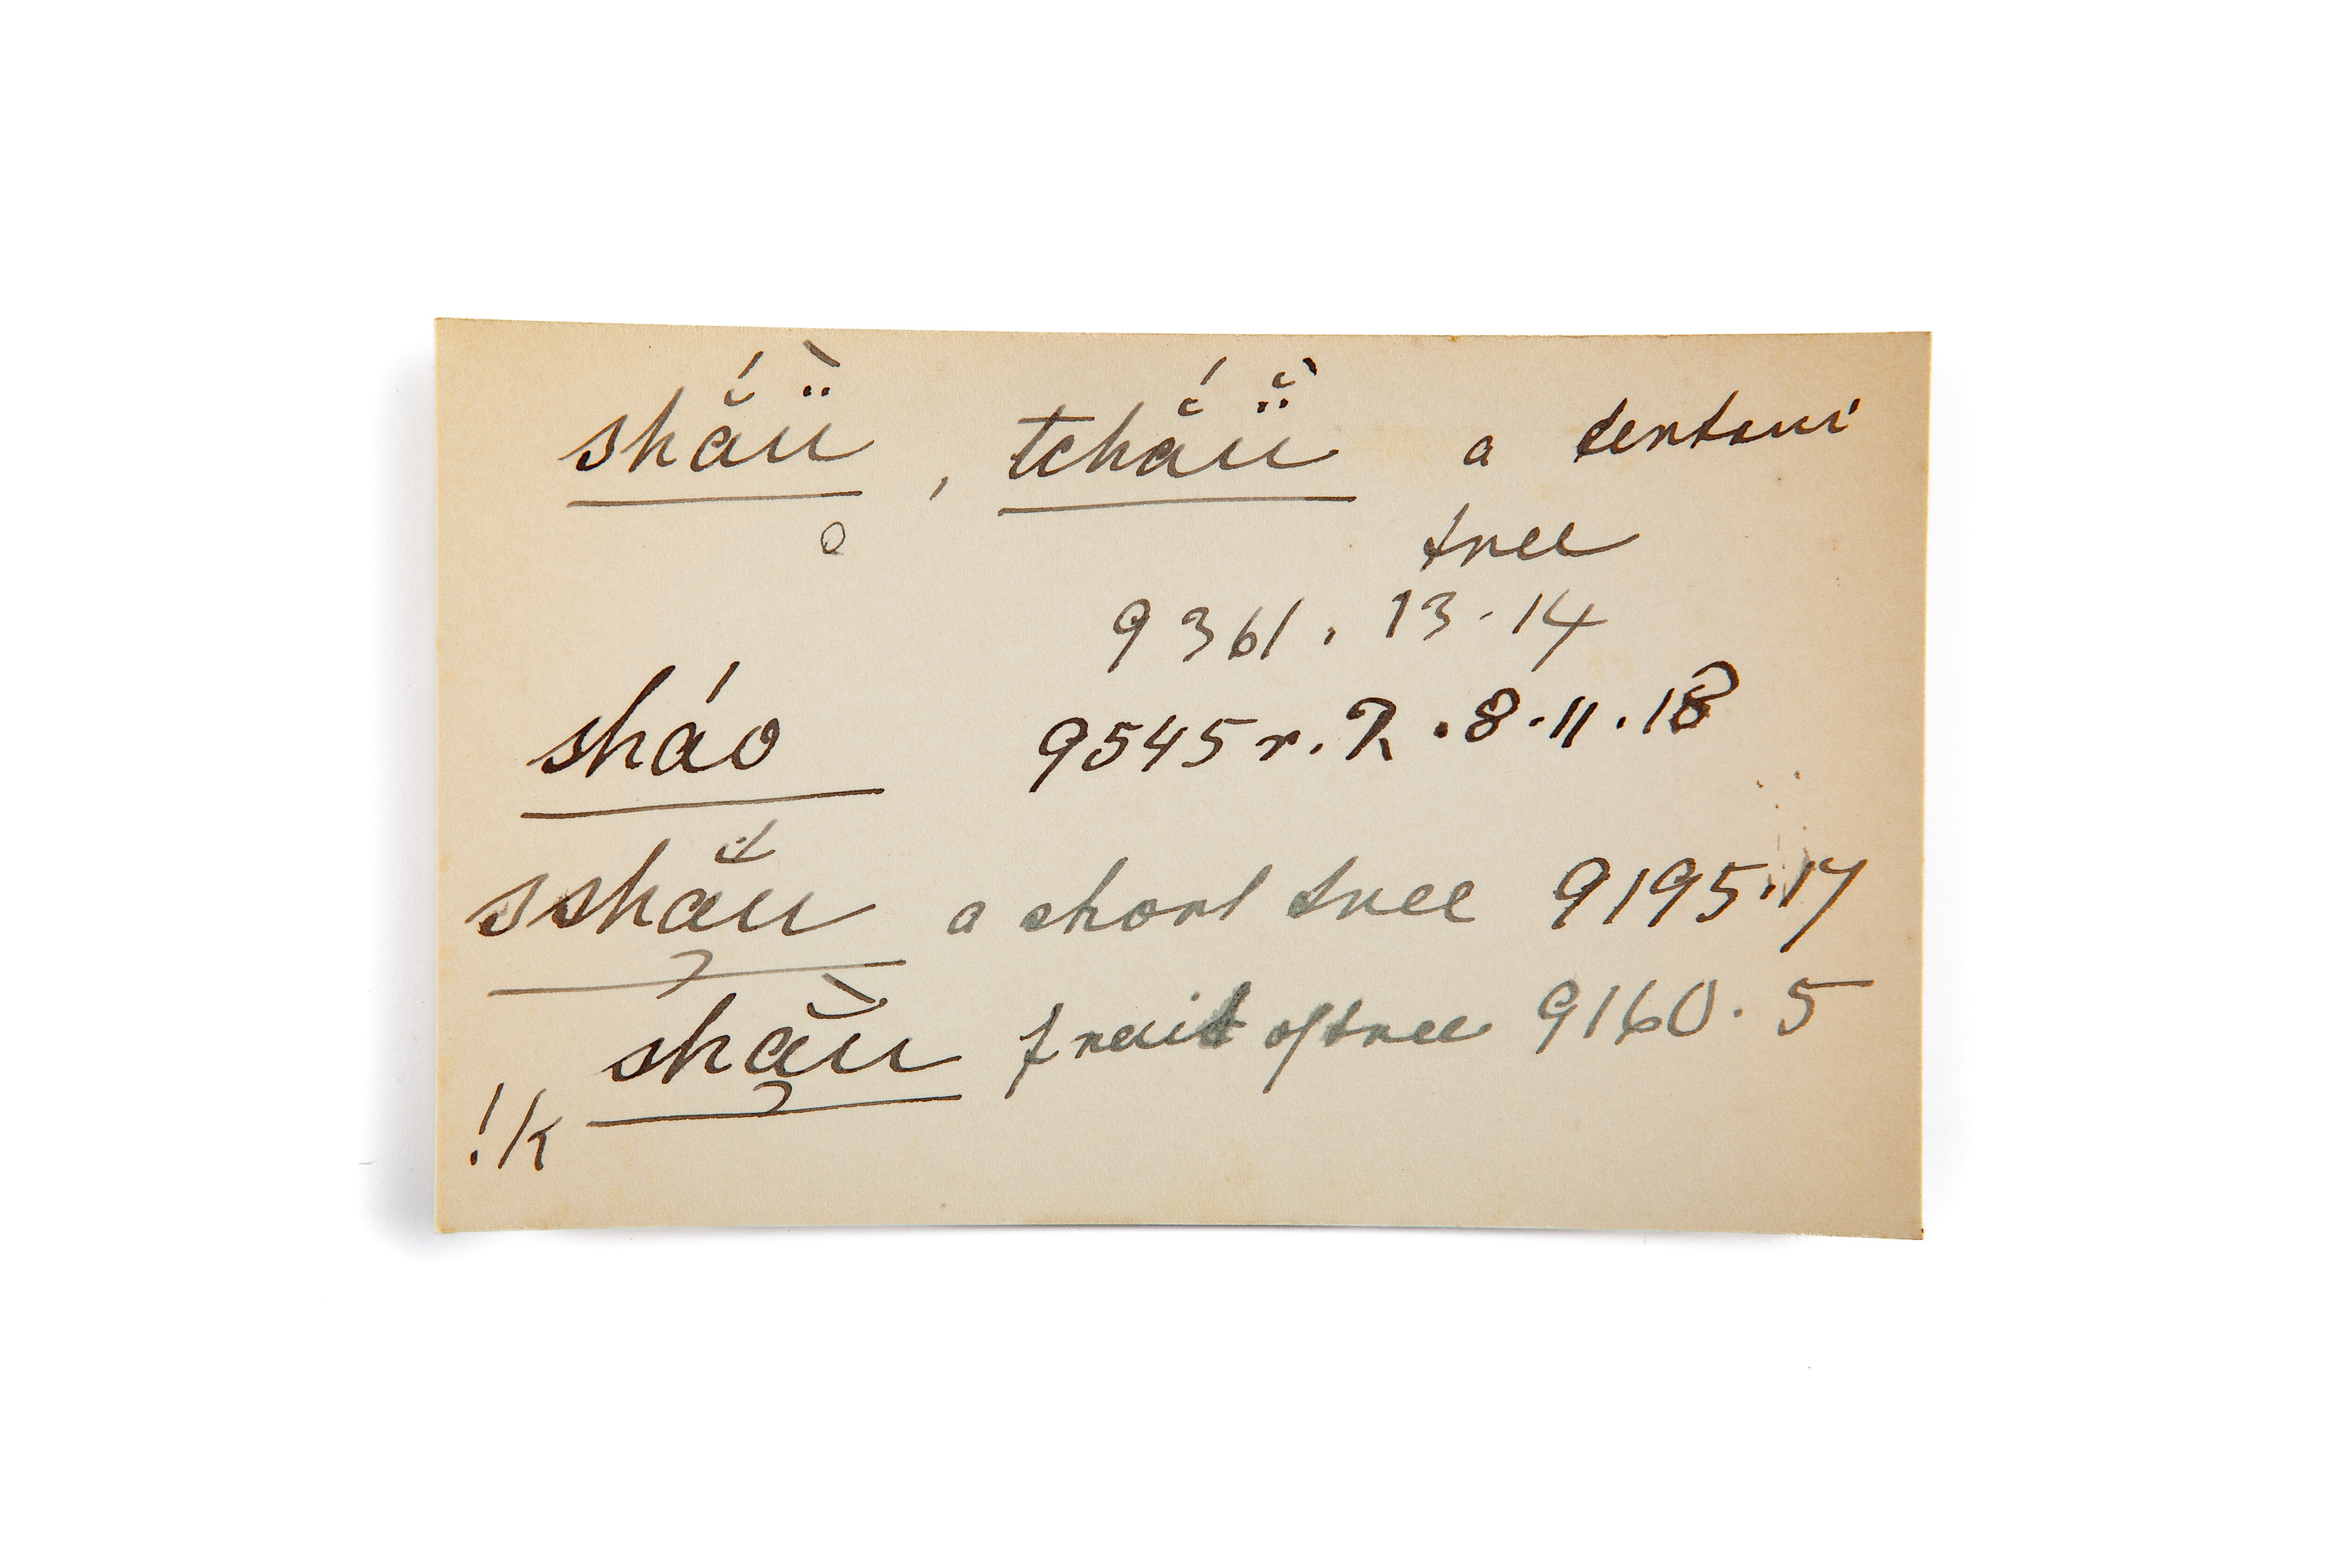 shắǜ, tchắǜ a
tree
9361. 13-14
sháo 9545 r. R. 8-11. 18
sshắu a short tree 9195.17
shằu fruit of tree 9160. 5
!k